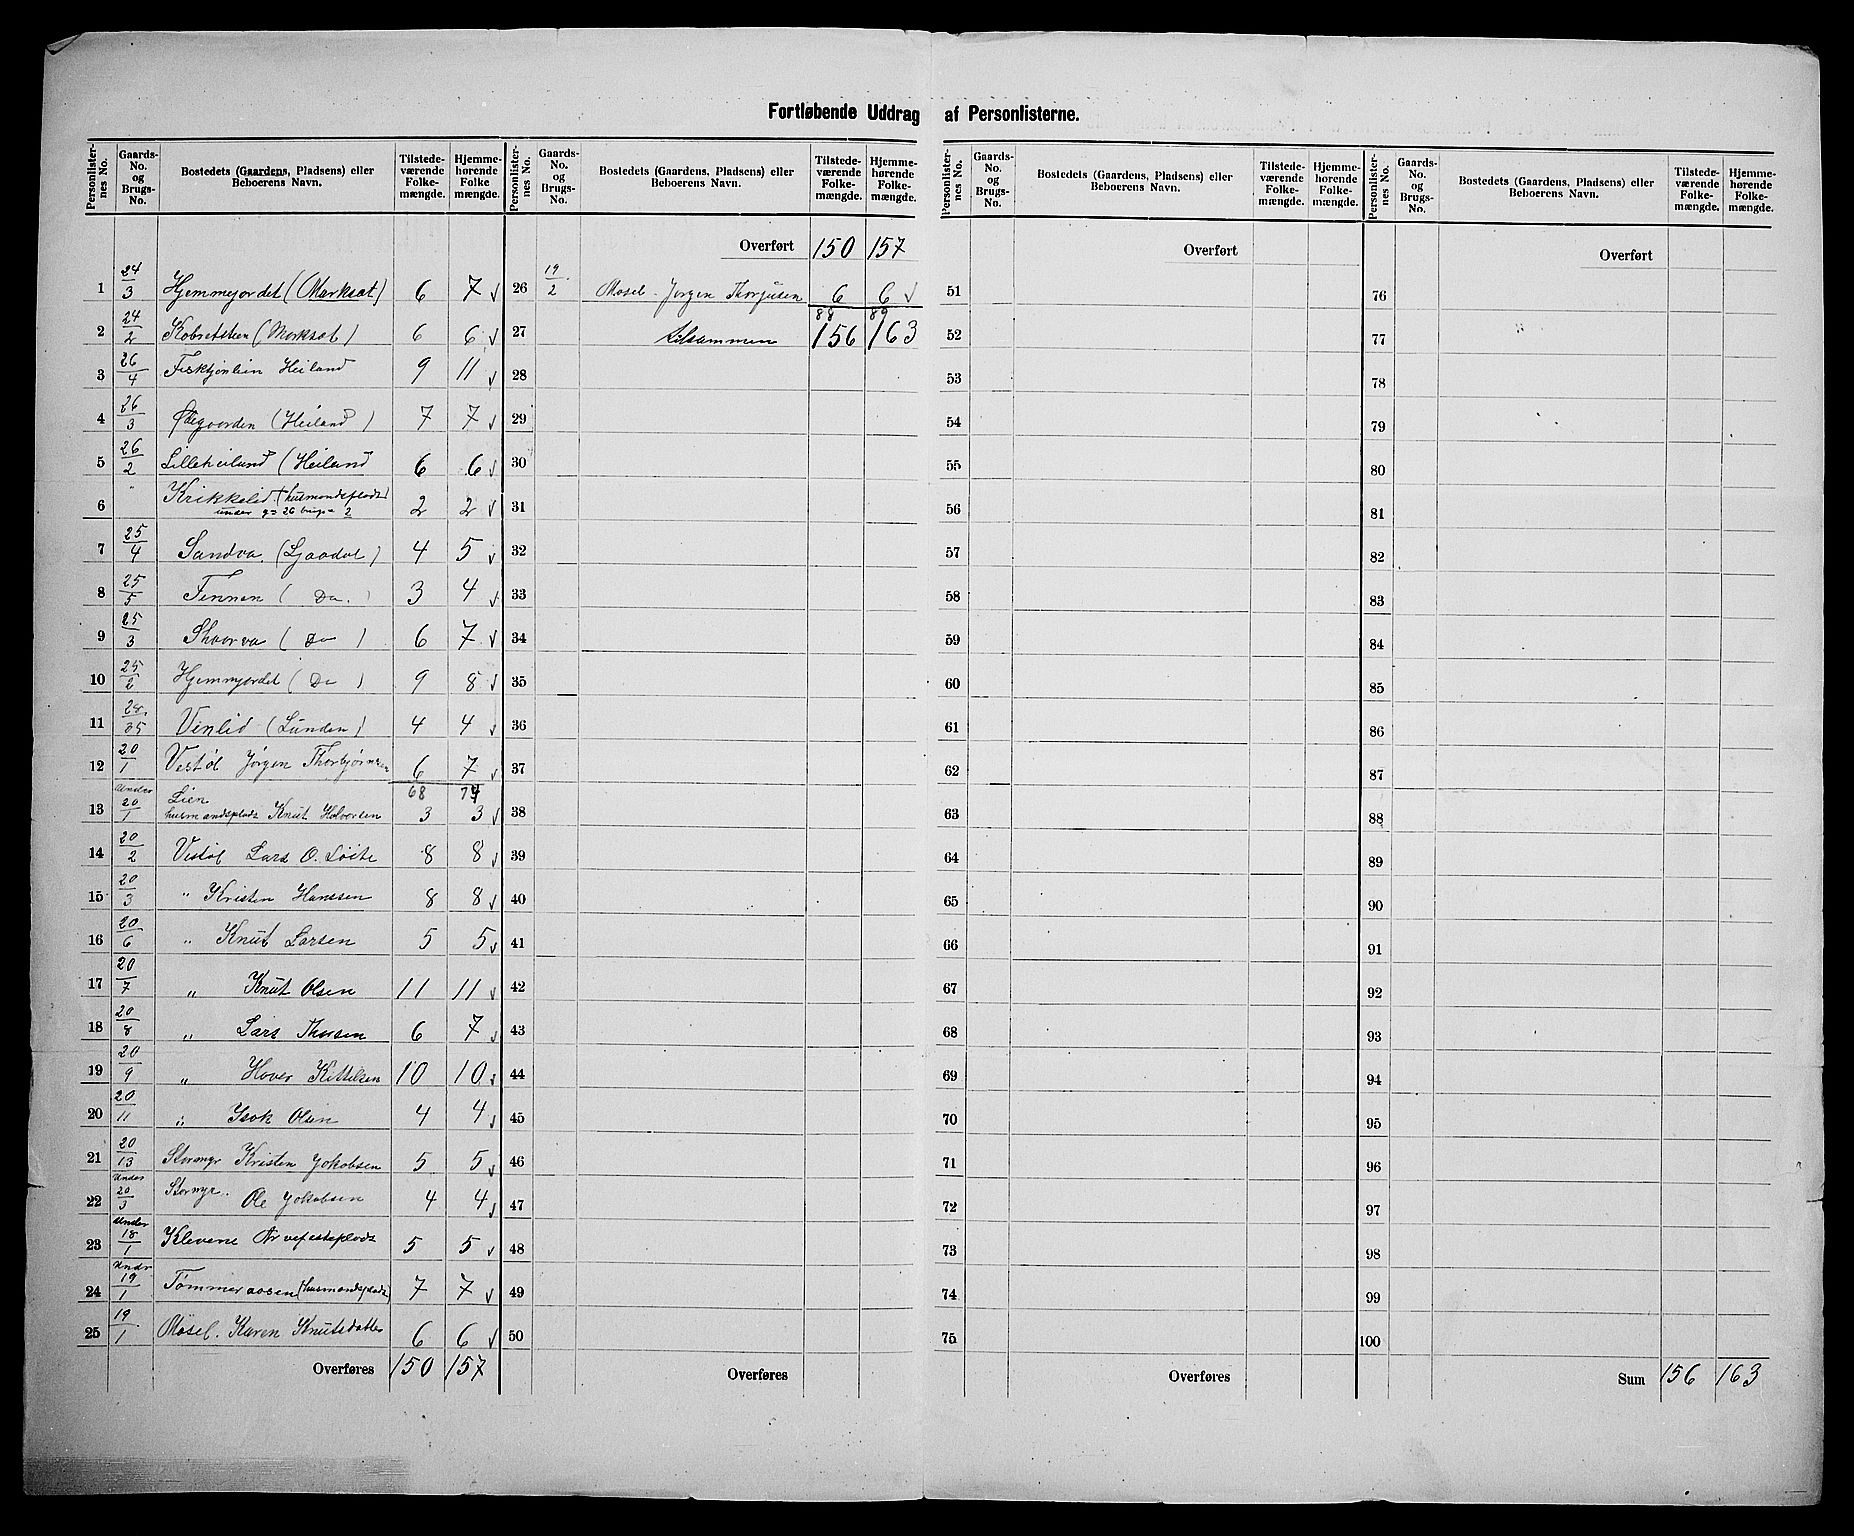 Fortløbende Uddrag af Personlisterne.
Personlister-nes No. | Gaards-No. og Brugs-No. | Bostedets (Gaardens, Pladsens) eller Beboerens Navn. | Tilstede-værende Folke-mængde. | Hjemme-hørende Folke mængde.
1 24/3 Hjemmejordet (Marksæt) 6 7 v
2 24/2 (Marksæt) 6 6 v
3 26/4 Heiland 9 11 v
4 26/3 Ødegaarden (Heiland) 7 7 v
5 26/2 Lilleheiland (Heiland 6 6 v
6 " Krikkelid (husmandsplads) 2 2 v
under g= 26 brug= 2
7 25/4 Sandva (Ljaadal) 4 5 v
8 25/5 Finnen (Do.) 3 4 v
9 25/3 (Do) 6 7 v
10 25/2 Hjemmjordet (Do) 9 8 v
11 28/35 Vinlid (Lunden) 4 4 v
12 20/1 Vestøl Jørgen Thorbjørnsen 6 7 v
68 74
13 Under 20/1 Lien
husmandsplads Knut Halvorsen 3 3 v
14 20/2 Vestøl Lars O. Løite 8 8 v
15 20/3 " Kristen Hanssen 8 8 v
16 20/6 " Knut Larsen 5 5 v
17 20/7 " Knut Olsen 11 11 v
18 20/8 " Lars Thorsen 6 7 v
19 20/9 " Hover Kittelsen 10 10 v
20 20/11 " Isak Olsen 4 4 v
21 20/13 Stormyr Kristen Jakobsen 5 5 v
22 Under 20/3 Stormyr. Ole Jakobsen 4 4 v
23 Under 18/1 Klevene Arvefesteplads 5 5 v
24 Undr 19/1 Tømmeraasen (husmandsplads) 7 7 v
25 19/1 Møsel. Karen Knutsdatter 6 6 v
Overføres 150 157
Personlister-nes No. | Gaards-No. og Brugs-No. | Bostedets (Gaardens, Pladsens) eller Beboerens Navn. | Tilstede-værende Folke-mængde. | Hjemme-hørende Folke-mængde.
Overført 150 157
26 19/2 Møsel - Jørgen Thorjusen 6 6 v
88 89
27 tilsammen 156 163
28
29
30
31
32
33
34
35
36
37
38
39
40
41
42
43
44
45
46
47
48
49
50
Overføres
Personlister-nes No. | Gaards-No. og Brugs-No. | Bostedets (Gaardens, Pladsens) eller Beboerens Navn. | Tilstede-værende Folke-mængde. | Hjemme-hørende Folke-mængde.
Overført
51
52
53
54
55
56
57
58
59
60
61
62
63
64
65
66
67
68
69
70
71
72
73
74
75
Overføres
Personlister-nes No. | Gaards-No. og Brugs-No. | Bostedets (Gaardens, Pladsens) eller Beboerens Navn. | Tilstede-værende Folke-mængde. | Hjemme-hørende Folke-mængde.
Overført
76
77
78
79
80
81
82
83
84
85
86
87
88
89
90
91
92
93
94
95
96
97
98
99
100
Sum 156 163